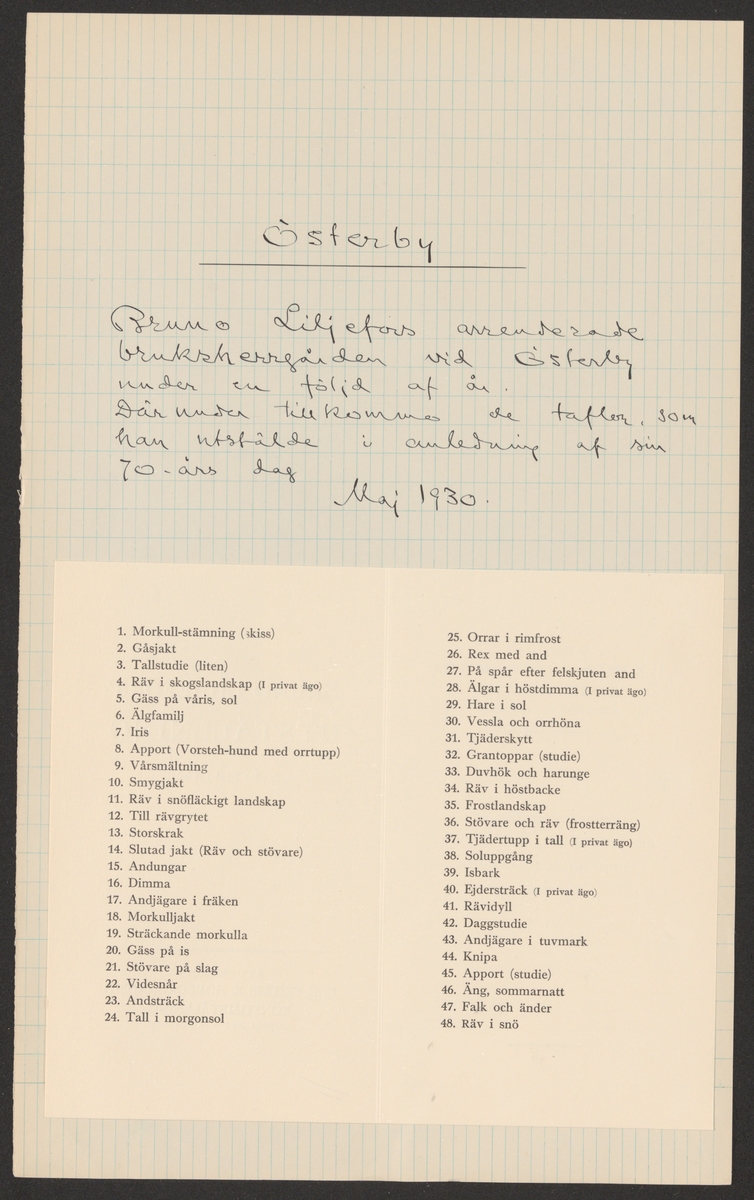 Österby
Bruno Liljefors arrenderade
bruksherrgården vid Österby
under en följd af år.
Därunder tillkommo de taflor, som
han utstälde i anledning af sin
70-års dag
Maj 1930.
1. Morkull-stämning (skiss)
2. Gåsjakt
3. Tallstudie (liten)
4. Räv i skogslandskap (I privat ägo)
5. Gäss på våris, sol
6. Älgfamilj
7. Iris
8. Apport (Vorsteh-hund med orrtupp)
9. Vårsmältning
10. Smygjakt
11. Räv i snöfläckigt landskap
12. Till rävgrytet
13. Storskrak
14. Slutad jakt (Räv och stövare)
15. Andungar
16. Dimma
17. Andjägare i fräken
18. Morkulljakt
19. Sträckande morkulla
20. Gäss på is
21. Stövare på slag
22. Videsnår
23. Andsträck
24. Tall i morgonsol
25. Orrar i rimfrost
26. Rex med and
27. På spår efter felskjuten and
28. Älgar i höstdimma (I privat ägo)
29. Hare i sol
30. Vessla och orrhöna
31. Tjäderskytt
32. Grantoppar (studie)
33. Duvhök och harunge
34. Räv i höstbacke
35. Frostlandskap
36. Stövare och räv (frostterräng)
37. Tjädertupp i tall (I privat ägo)
38. Soluppgång
39. Isbark
40. Ejdersträck (I privat ägo)
41. Rävidyll
42. Daggstudie
43. Andjägare i tuvmark
44. Knipa
45. Apport (studie)
46. Äng, sommarnatt
47. Falk och änder
48. Räv i snö